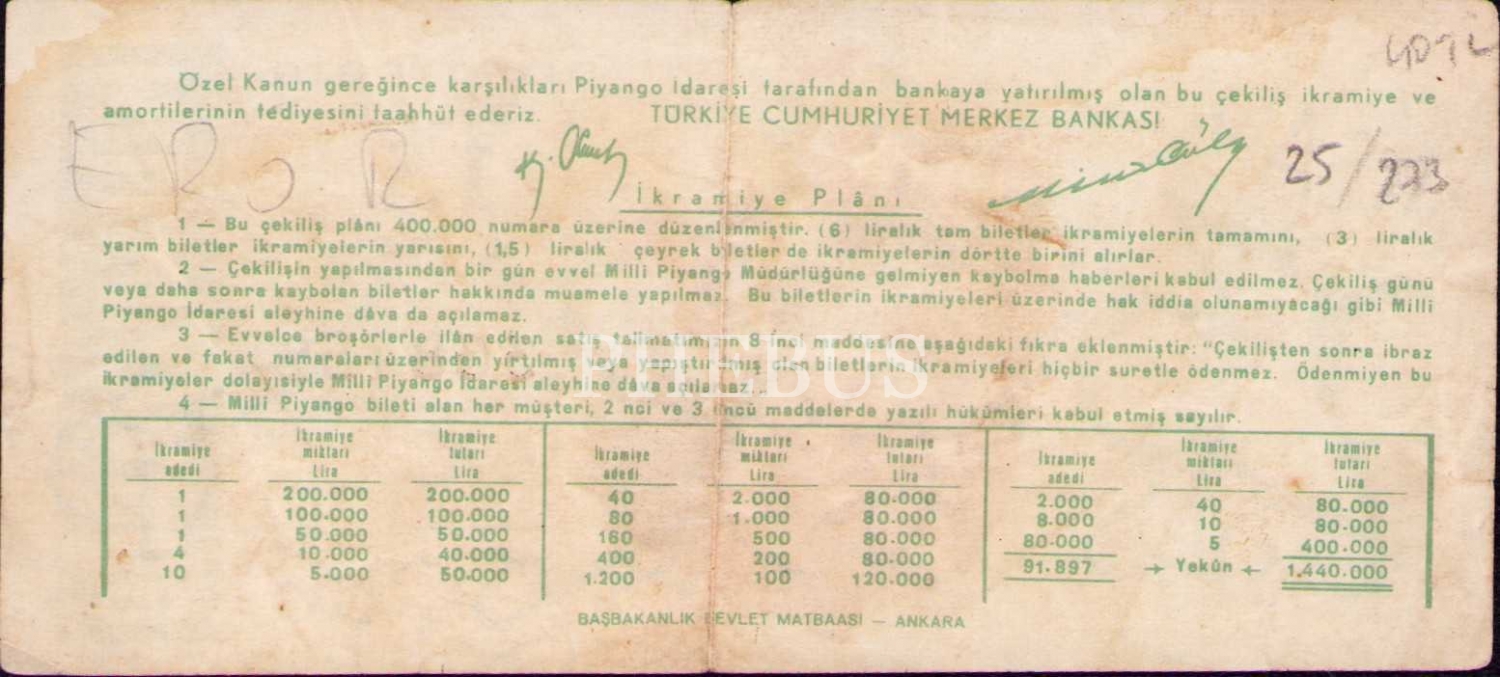 4092
Özel Kanun gereğince karşılıkları Piyango İdaresi tarafından bankaya yatırılmış olan bu çekiliş ikramiye ve
amortilerinin tediyesini taahhüt ederiz. TÜRKİYE CUMHURİYET MERKEZ BANKASI
E R O R
25/273
İkramiye Plânı
1 — Bu çekiliş plânı 400.000 numara üzerine düzenlenmiştir. (6) liralık tam biletler ikramiyelerin tamamını, (3) liralık
yarım biletler ikramiyelerin yarısını, (1,5) liralık çeyrek biletler de ikramiyelerin dörtte birini alırlar.
2 — Çekilişin yapılmasından bir gün evvel Milli Piyango Müdürlüğüne gelmiyen kaybolma haberleri kabul edilmez. Çekiliş günü
veya daha sonra kaybolan biletler hakkında muamele yapılmaz. Bu biletlerin ikramiyeleri üzerinde hak iddia olunamıyacağı gibi Milli
Piyango İdaresi aleyhine dâva da açılamaz.
3 — Evvelce broşörlerle ilân edilen satış talimatımızın 8 inci maddesine aşağıdaki fıkra eklenmiştir: "Çekilişten sonra ibraz
edilen ve fakat numaraları üzerinden yırtılmış veya yapıştırılmış olan biletlerin ikramiyeleri hiçbir suretle ödenmez. Ödenmiyen bu
ikramiyeler dolayısiyle Milli Piyango İdaresi aleyhine dâva açılamaz..
PHEBUS
4 — Milli Piyango bileti alan her müşteri, 2 nci ve 3 üncü maddelerde yazılı hükümleri kabul etmiş sayılır.
İkramiye adedi İkramiye miktarı Lira İkramiye tutarı Lira İkramiye adedi İkramiye miktarı Lira İkramiye tutarı Lira İkramiye adedi İkramiye miktarı Lira İkramiye tutarı Lira
1 200.000 200.000 40 2.000 80.000 2.000 40 80.000
1 100.000 100.000 80 1.000 80.000 8.000 10 80.000
1 50.000 50.000 160 500 80.000 80.000 5 400.000
4 10.000 40.000 400 200 80.000 91.897 → Yekûn ← 1.440.000
10 5.000 50.000 1.200 100 120.000
BAŞBAKANLIK DEVLET MATBAASI — ANKARA